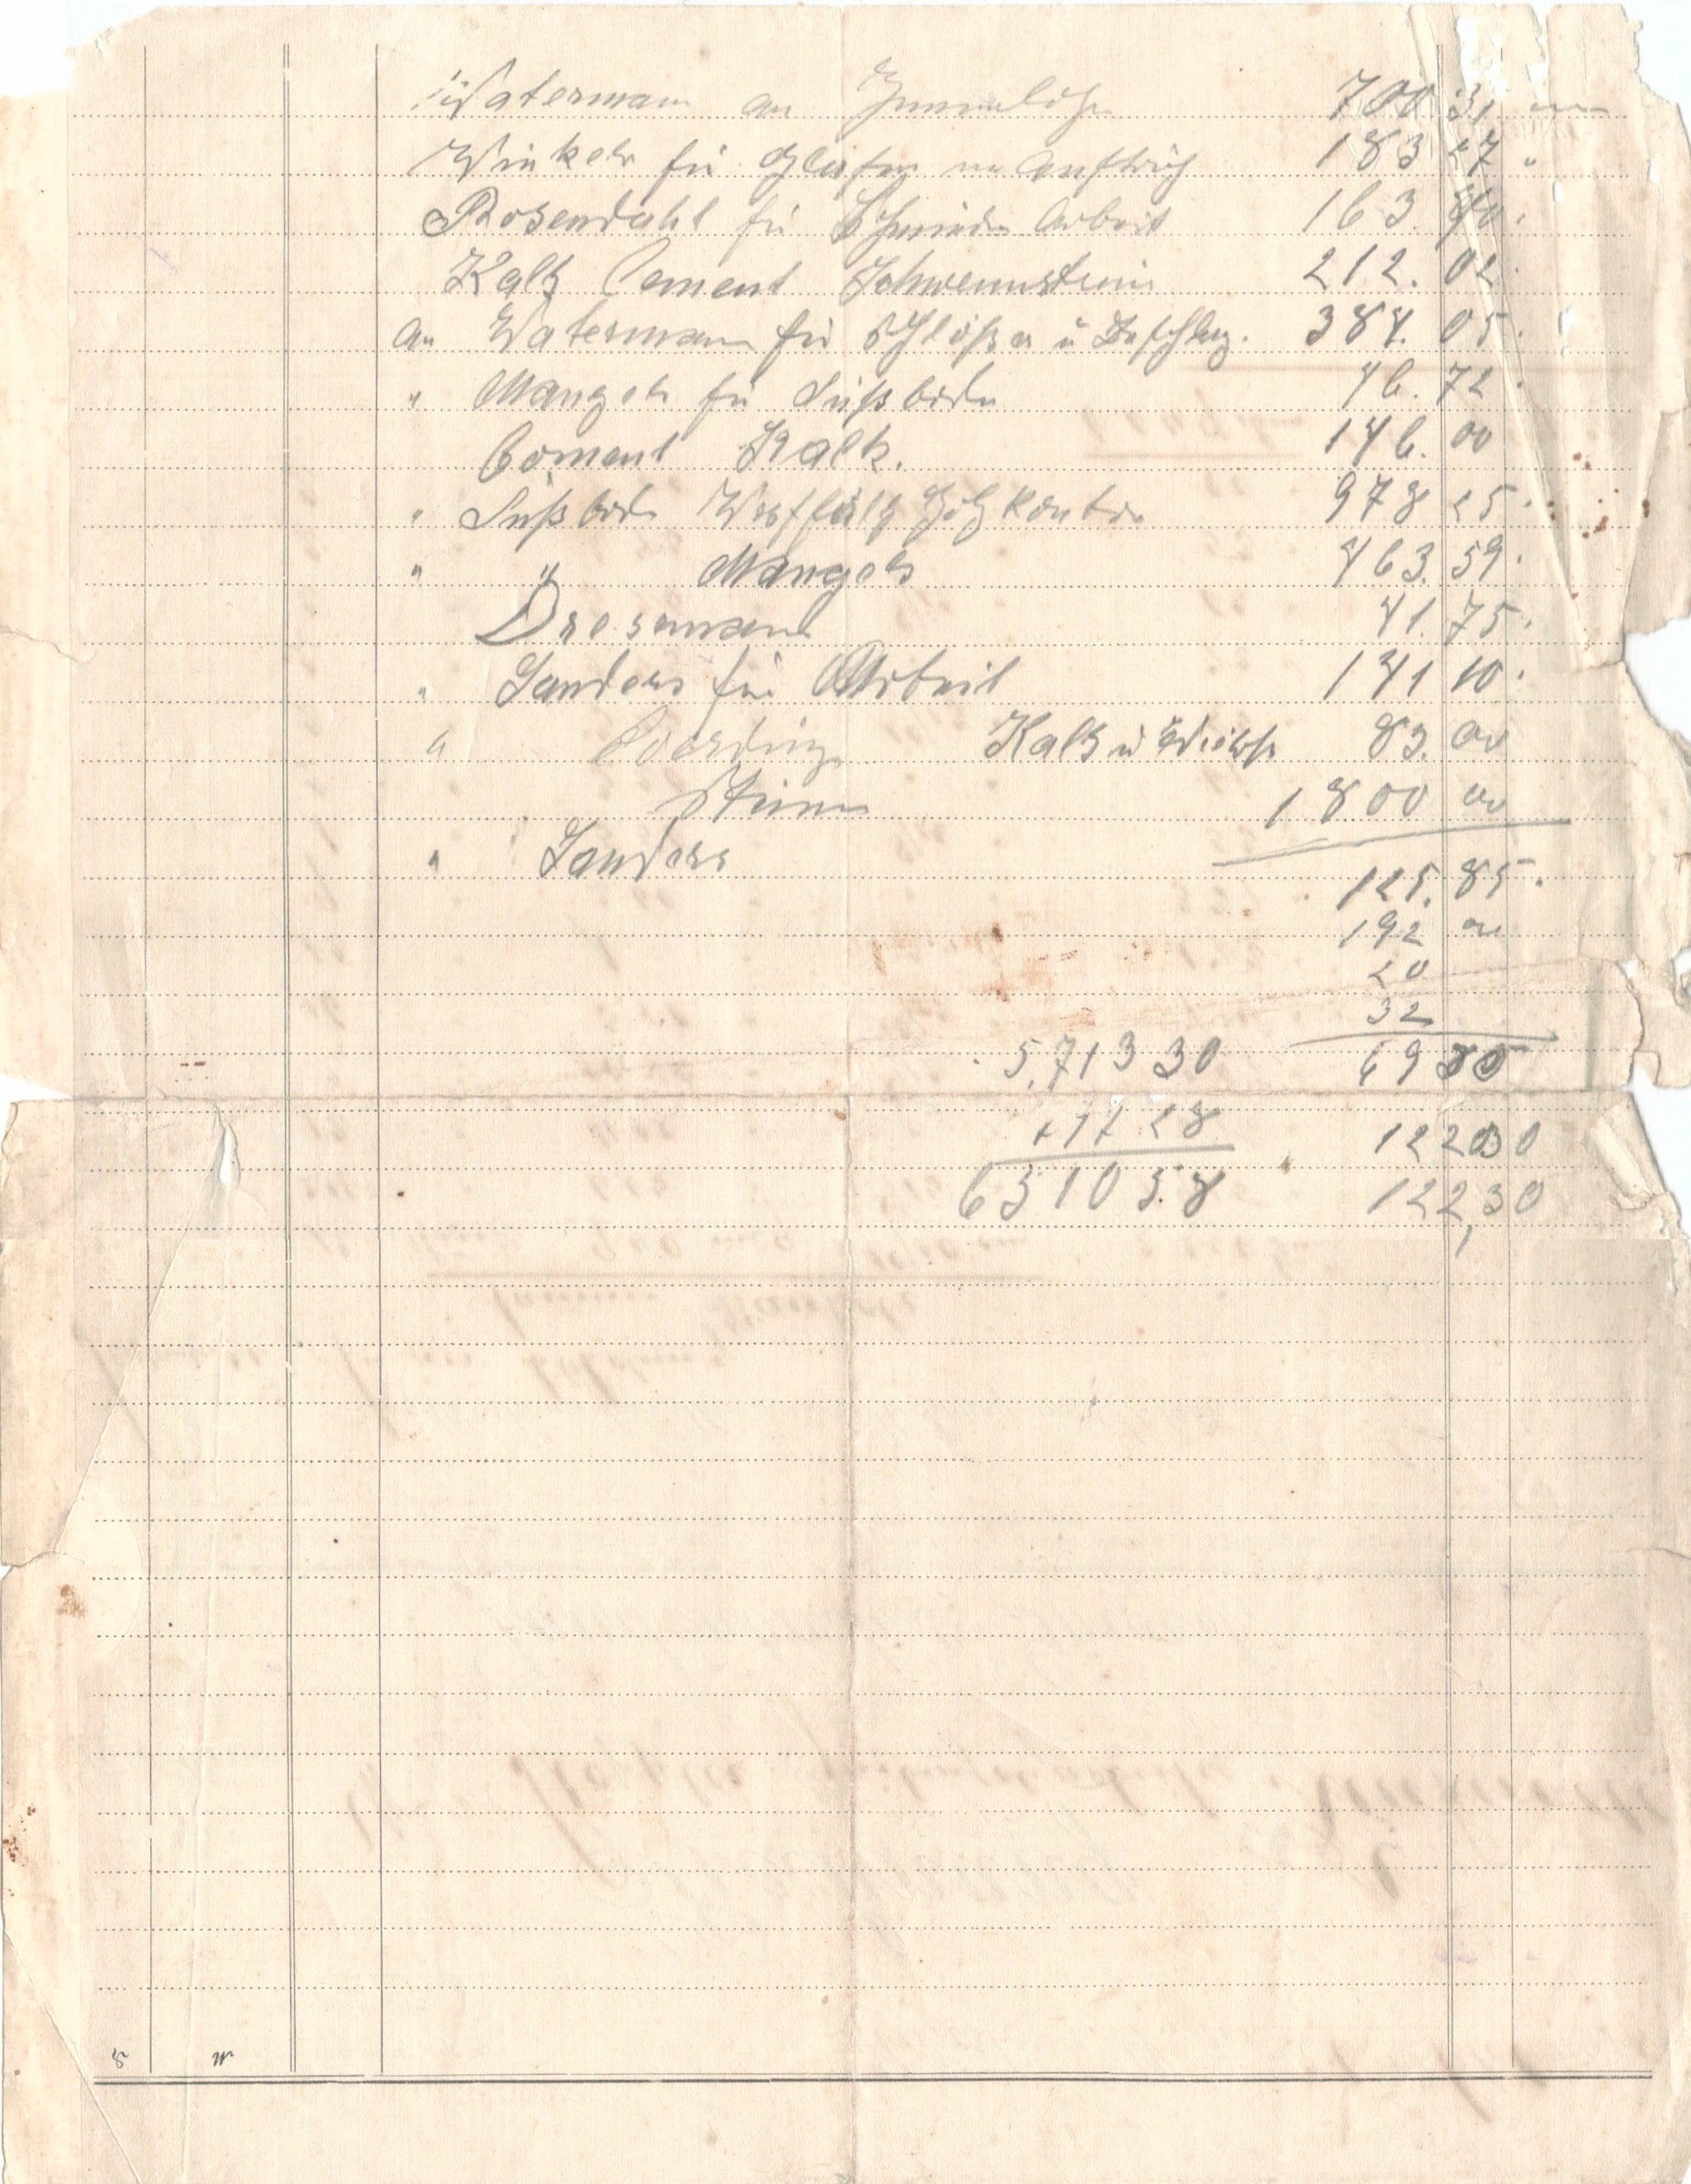 Waterman an 700 31
Winkeln für Glasfen un Anstrich 183 27 "
Rosendahl für Schmiede Arbeit 163. 40.
Kalk Cement Schwemmsteine 212. 02.
An Waterman für Schlößer u Beschlag. 384. 05.
" Mangels für Fußboden 46. 72.
Cement Kalk. 146. 00
" Fußboden Westfälg Holzkontor 978 25.
" " Mangels 463. 59.
Dresemann 41. 75.
" Sanders für Arbeit 141 10.
" Kalk u 83. 00
Steine 1800 00
" Sanders
125. 85.
192 00
20
32
5.713 30 69 85
28 122030
6310 5.8 122,30